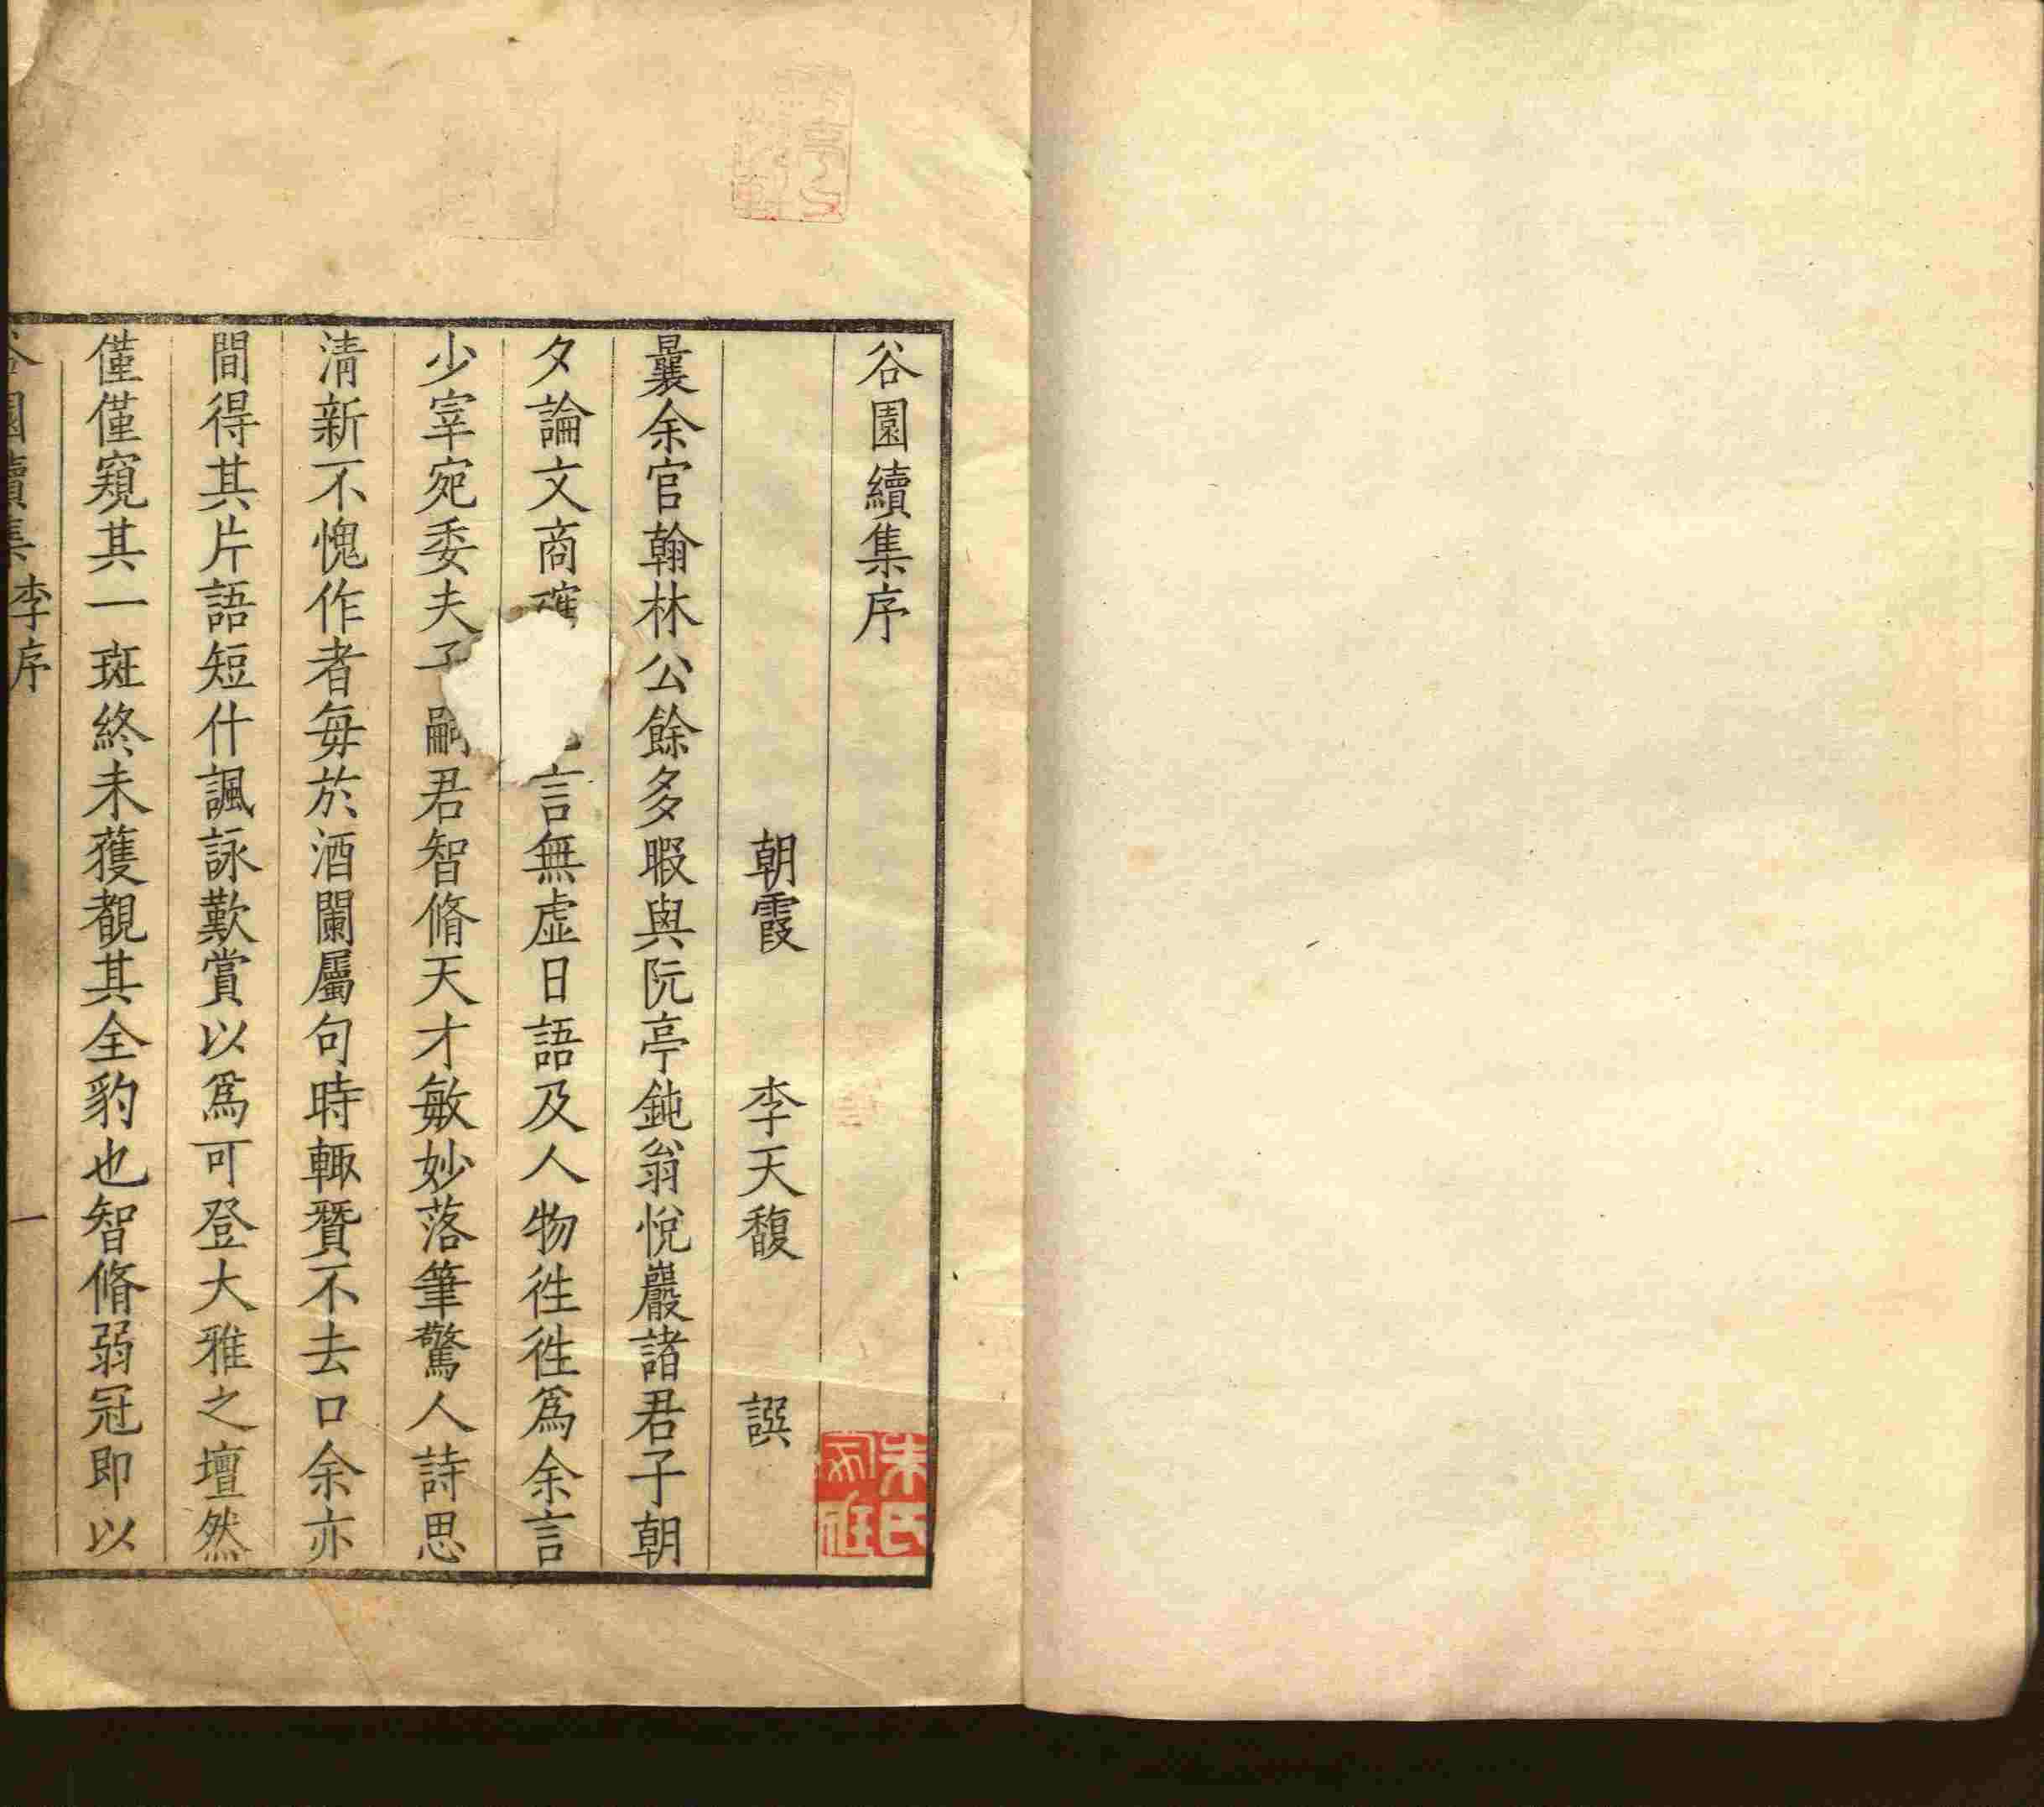 谷園續集序
朝霞 李天馥 譔
曩余官翰林公餘多暇與阮亭鈍翁悅巖諸君子朝
夕論文商確言無虛日語及人物徃徃爲余言
少宰宛委夫子嗣君智脩天才敏妙落筆驚人詩思
淸新不愧作者每於酒闌屬句時輙贊不去口余亦
間得其片語短什諷詠歎賞以爲可登大雅之壇然
僅僅窺其一斑終未獲覩其全豹也智脩弱冠即以
谷園續集 李序 一
朱氏